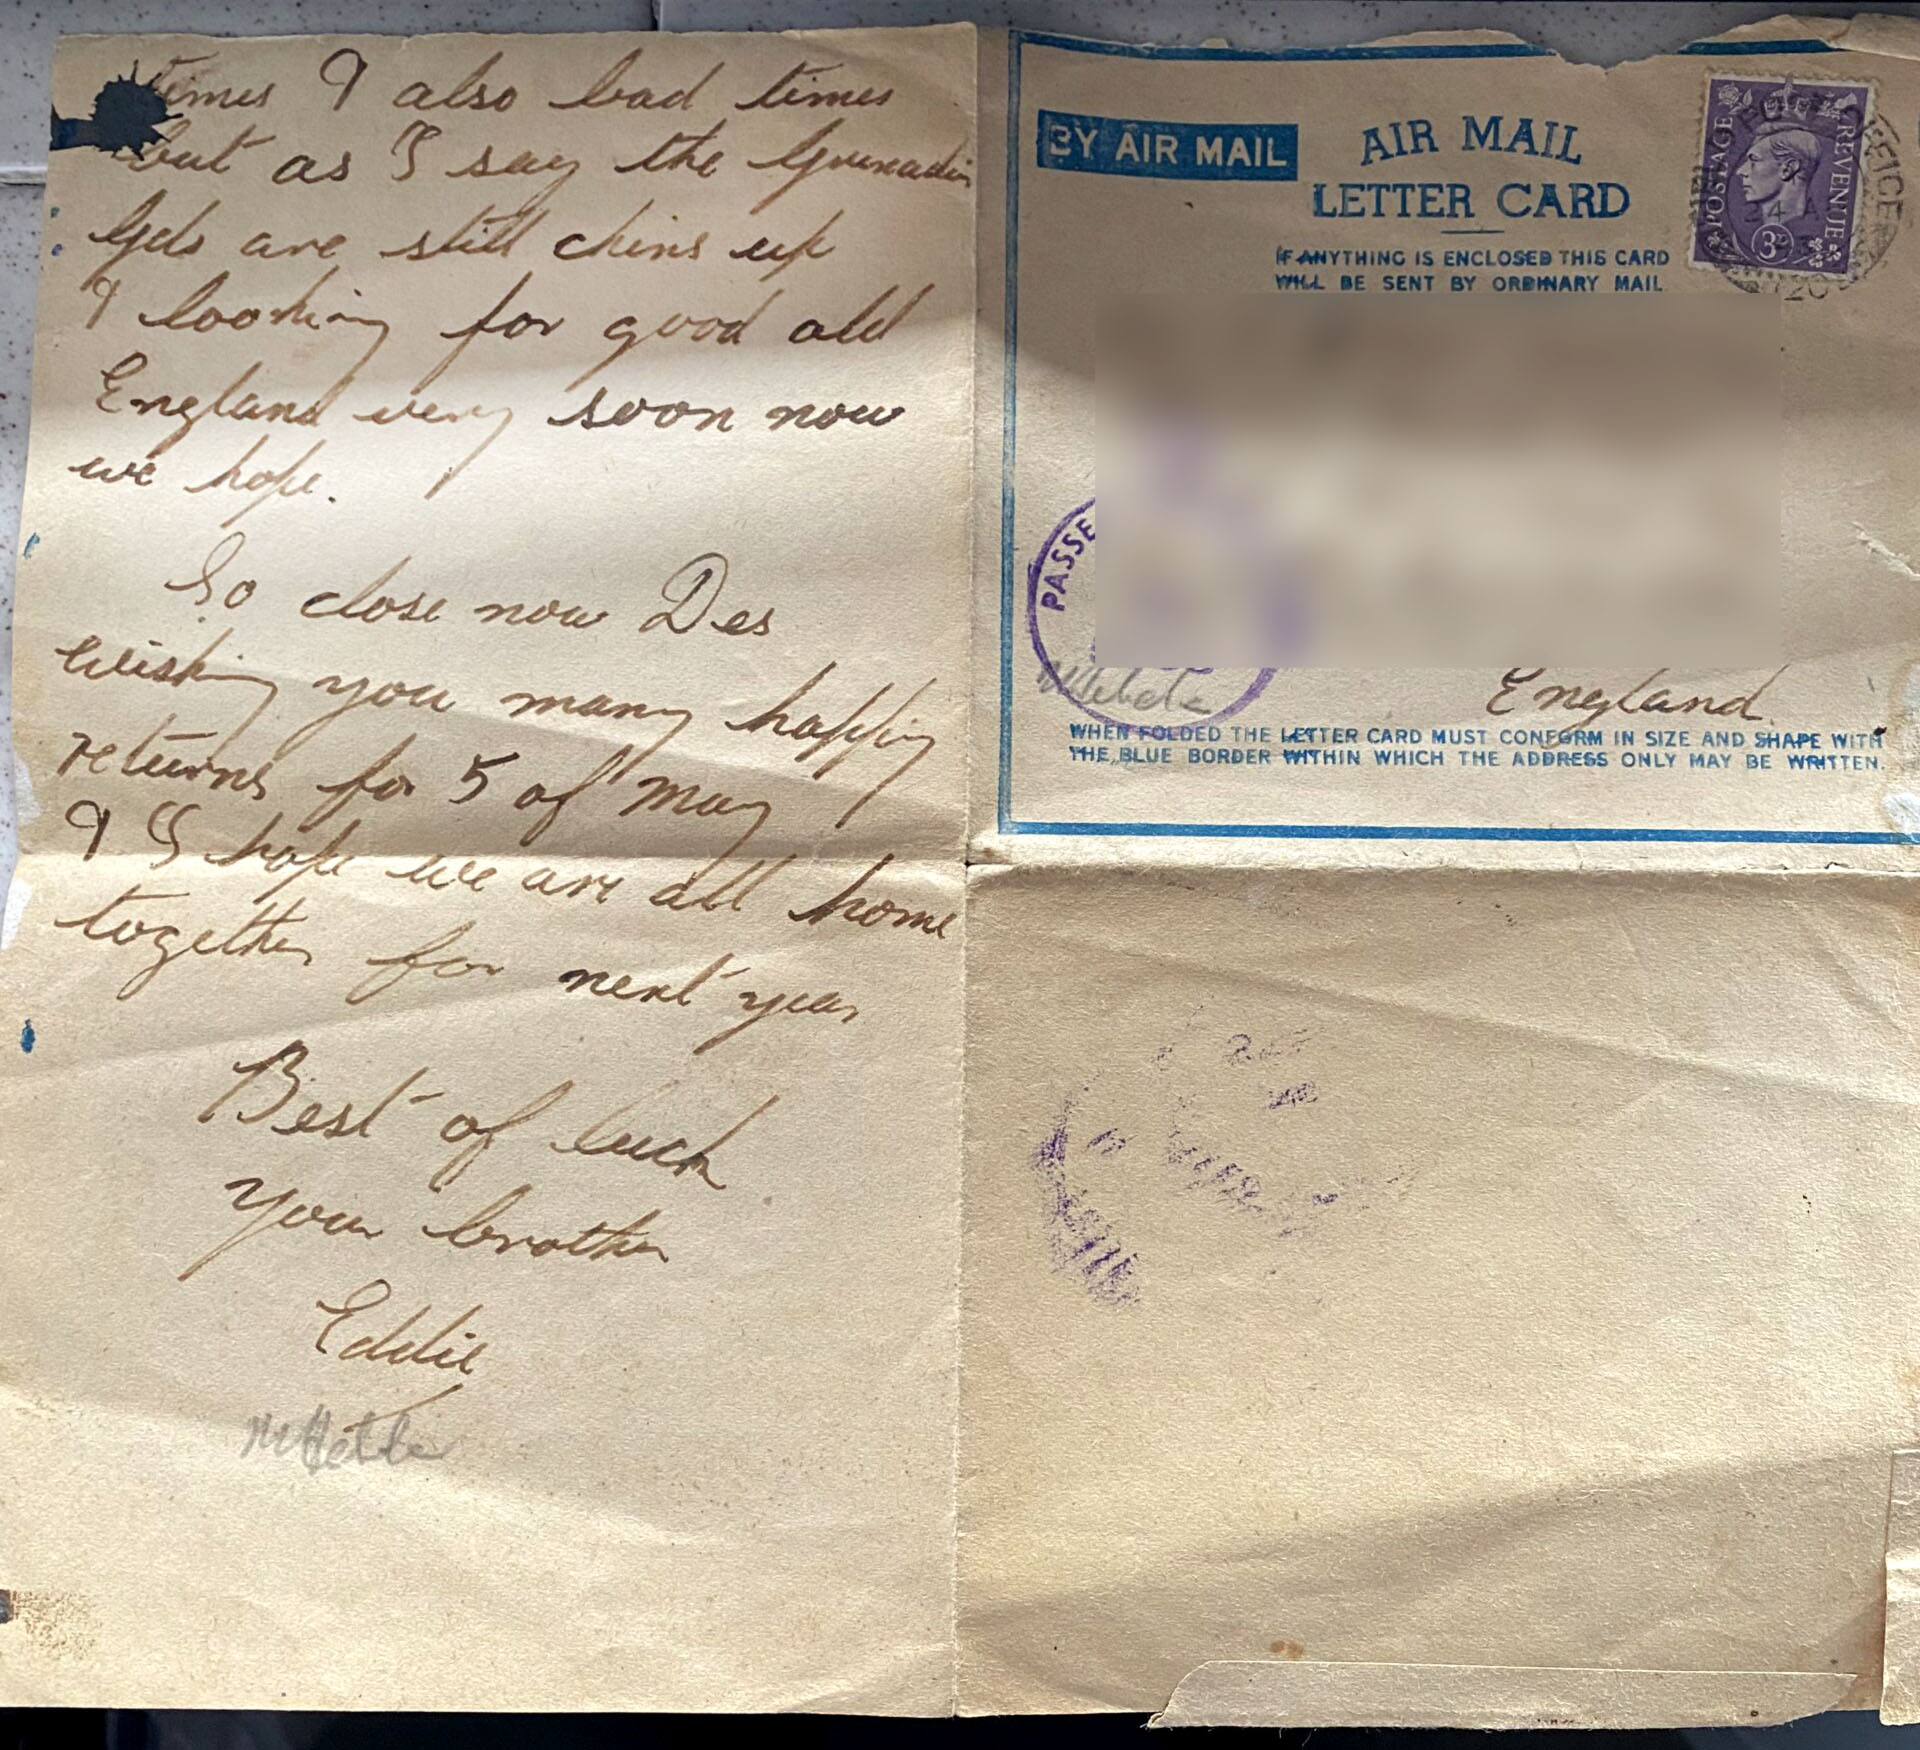 times & also bad times
but as I say the Grenadier
Gds are still chins up
& looking for good old
England very soon now
we hope.
So close now Des
wishing you many happy
returns for 5 of may
& I hope we are all home
together for next year
Best of luck
your brother
Eddie
BY AIR MAIL
AIR MAIL
LETTER CARD
IF ANYTHING IS ENCLOSED THIS CARD
WILL BE SENT BY ORDINARY MAIL
POSTAGE REVENUE
3D
24 A
PASSE
England.
WHEN FOLDED THE LETTER CARD MUST CONFORM IN SIZE AND SHAPE WITH
THE BLUE BORDER WITHIN WHICH THE ADDRESS ONLY MAY BE WRITTEN.